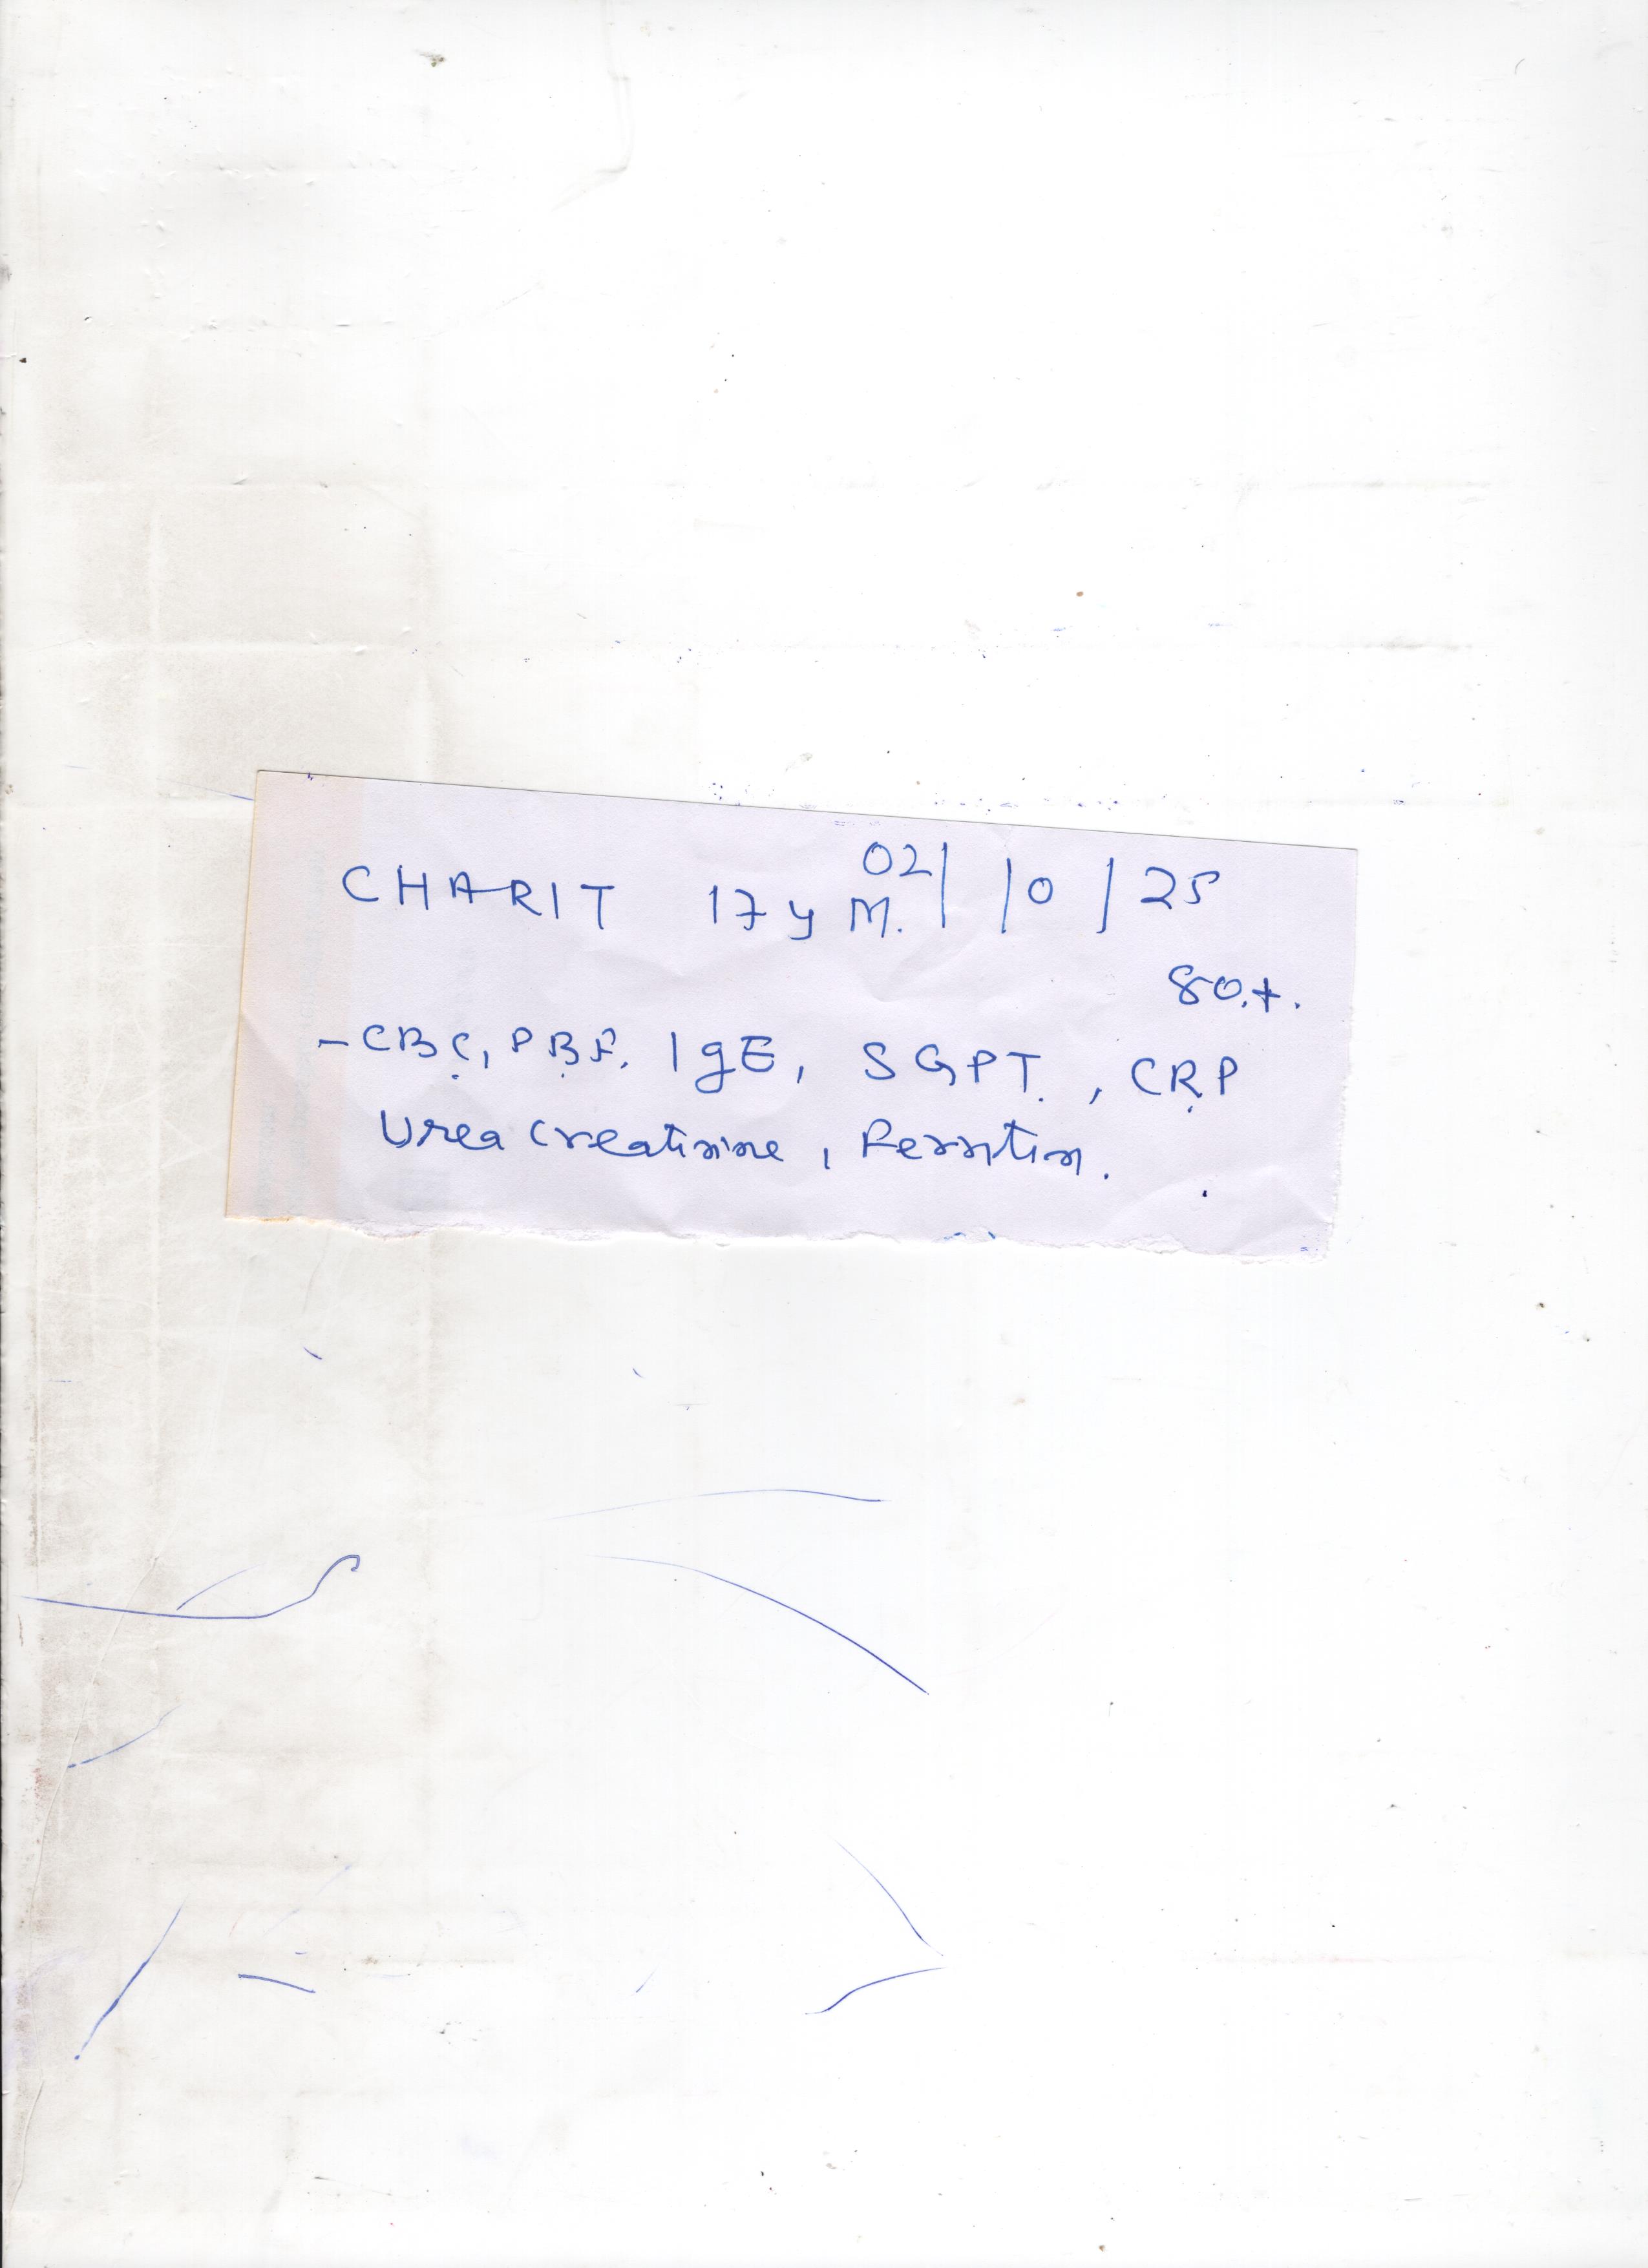 CHARIT 17 y M. 02/10/25
80.+.
- CBC, PBF, IgE, SGPT., CRP
Urea Creatinine, Ferritin.